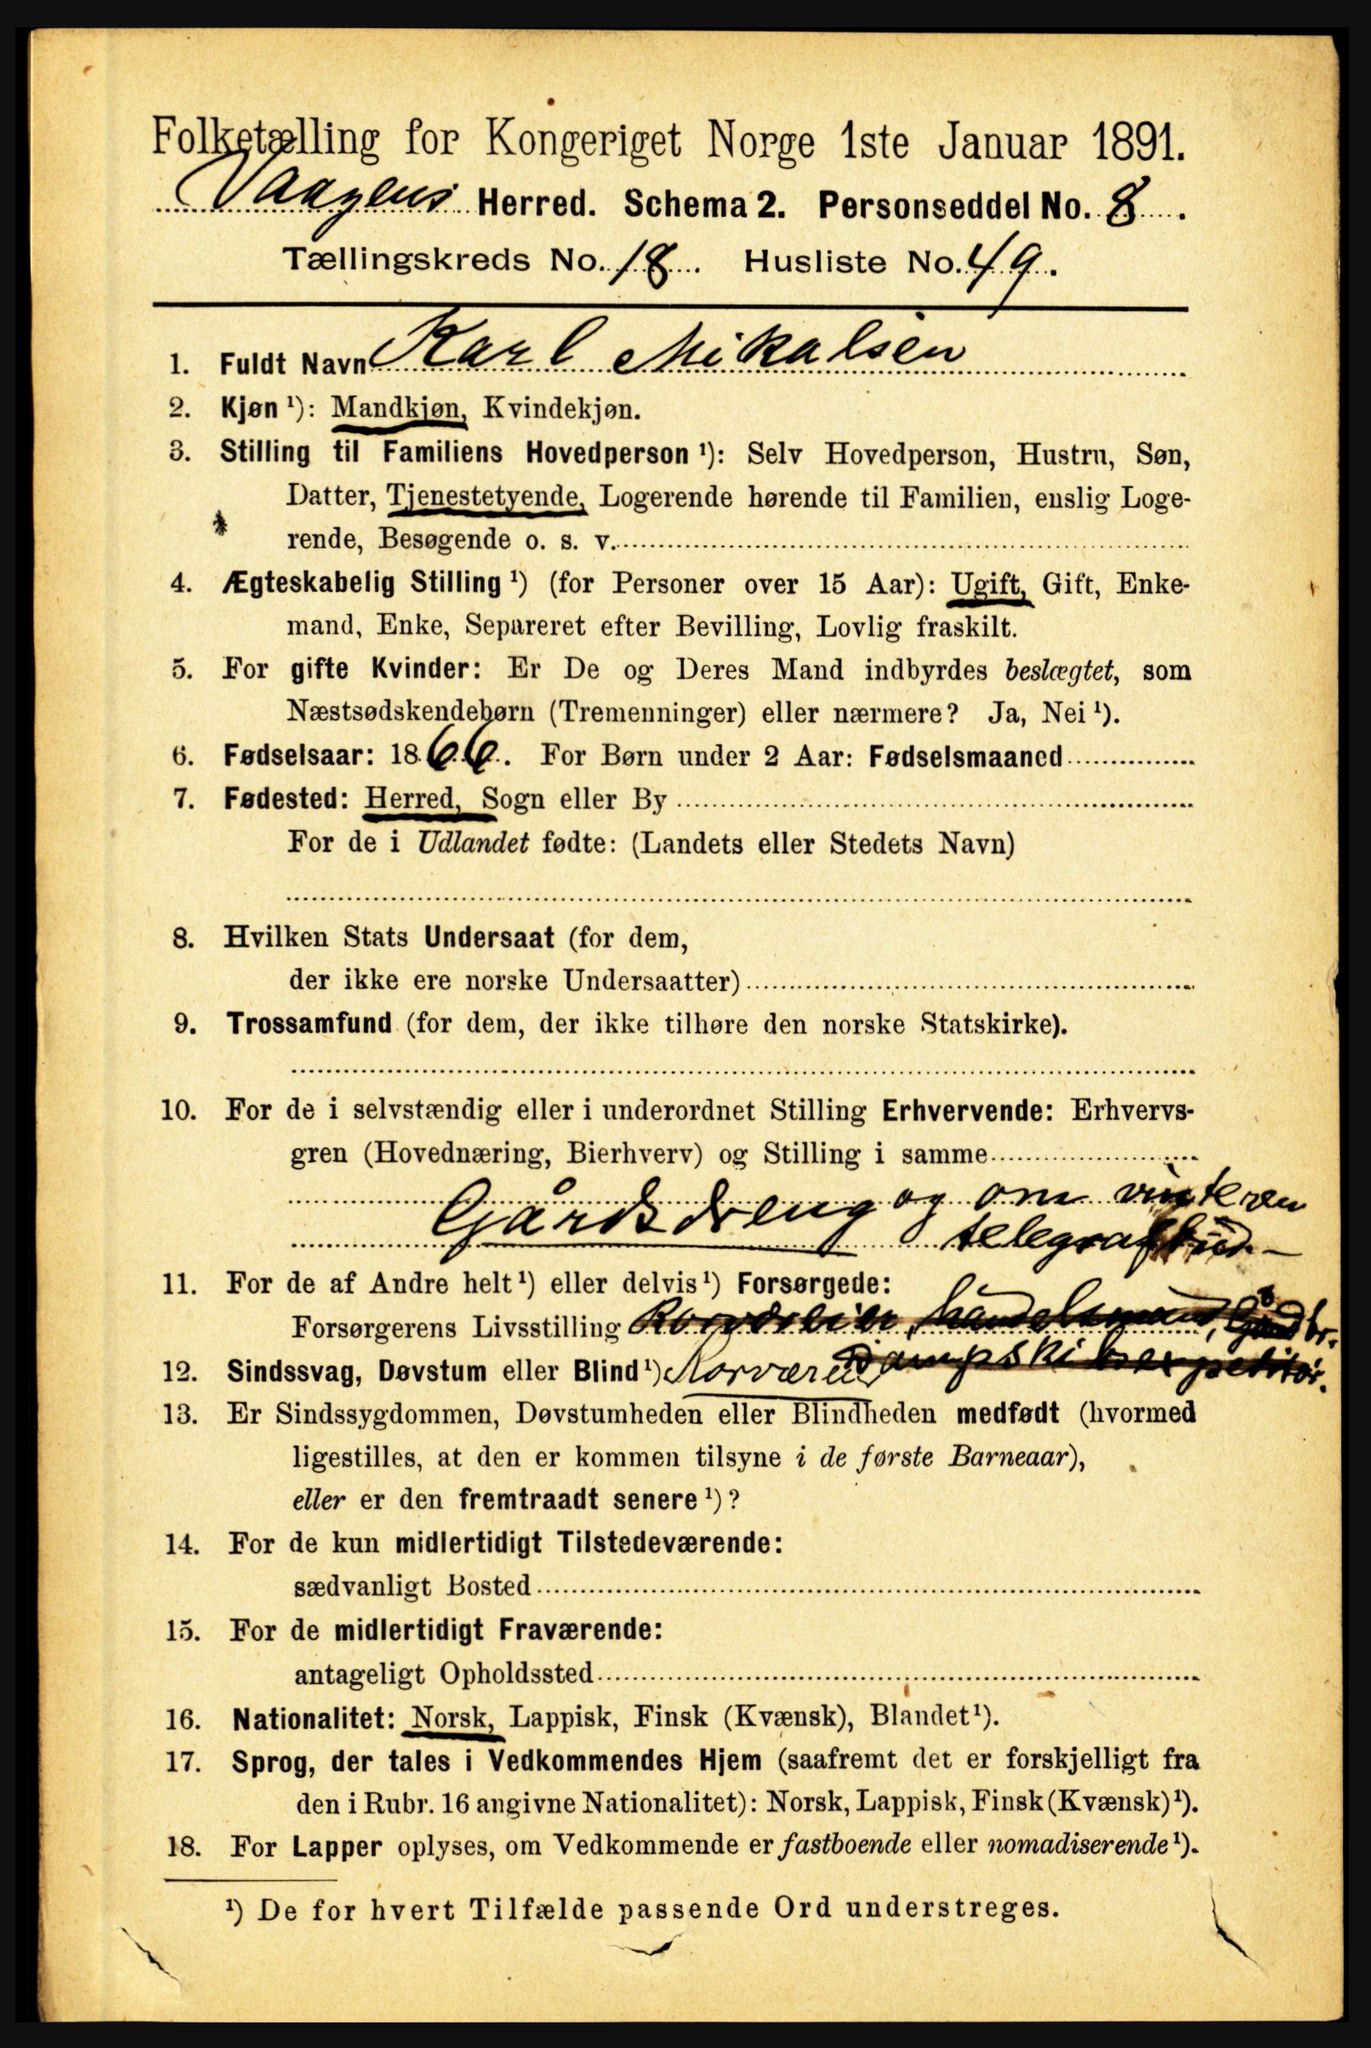 Folketælling for Kongeriget Norge 1ste Januar 1891.
Vaagens Herred. Schema 2. Personseddel No. 8.
Tællingskreds No. 18. Husliste No. 49.
1. Fuldt Navn Karl Mikalsen
2. Kjøn ¹): Mandkjøn, Kvindekjøn.
3. Stilling til Familiens Hovedperson ¹): Selv Hovedperson, Hustru, Søn,
Datter, Tjenestetyende, Logerende hørende til Familien, enslig Loge-
rende, Besøgende o. s. v.
4. Ægteskabelig Stilling ¹) (for Personer over 15 Aar): Ugift, Gift, Enke-
mand, Enke, Separeret efter Bevilling, Lovlig fraskilt.
5. For gifte Kvinder: Er De og Deres Mand indbyrdes beslægtet, som
Næstsødskendebørn (Tremenninger) eller nærmere? Ja, Nei ¹).
6. Fødselsaar: 1866. For Børn under 2 Aar: Fødselsmaaned
7. Fødested: Herred, Sogn eller By
For de i Udlandet fødte: (Landets eller Stedets Navn)
8. Hvilken Stats Undersaat (for dem,
der ikke ere norske Undersaatter)
9. Trossamfund (for dem, der ikke tilhøre den norske Statskirke).
10. For de i selvstændig eller i underordnet Stilling Erhvervende: Erhvervs-
gren (Hovednæring, Bierhverv) og Stilling i samme
Gårdsdreng og om vinteren
telegrafbud.
11. For de af Andre helt ¹) eller delvis ¹) Forsørgede:
Forsørgerens Livsstilling handelsmand, Gårdbr.
12. Sindssvag, Døvstum eller Blind ¹) Dampskibsexpeditør.
13. Er Sindssygdommen, Døvstumheden eller Blindheden medfødt (hvormed
ligestilles, at den er kommen tilsyne i de første Barneaar),
eller er den fremtraadt senere ¹)?
14. For de kun midlertidigt Tilstedeværende:
sædvanligt Bosted
15. For de midlertidigt Fraværende:
antageligt Opholdssted
16. Nationalitet: Norsk, Lappisk, Finsk (Kvænsk), Blandet ¹).
17. Sprog, der tales i Vedkommendes Hjem (saafremt det er forskjelligt fra
den i Rubr. 16 angivne Nationalitet): Norsk, Lappisk, Finsk (Kvænsk) ¹).
18. For Lapper oplyses, om Vedkommende er fastboende eller nomadiserende ¹).
¹) De for hvert Tilfælde passende Ord understreges.